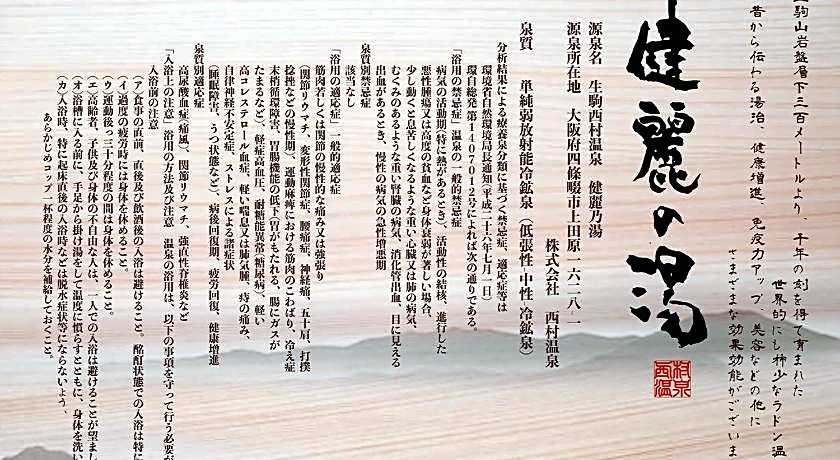 駒山岩盤層下三百メートルより、千年の刻を得て育まれた
世界的にも稀少なラドン温
昔から伝わる湯治、健康増進、免疫力アップ、美容などの他に
さまざまな効果効能がございま
健麗の湯
西村温泉
源泉名　生駒西村温泉　健麗乃湯
源泉所在地　大阪府四條畷市上田原一六二八ー一
株式会社　西村温泉
泉質　単純弱放射能冷鉱泉（低張性・中性・冷鉱泉）
分析結果による療養泉分類に基づく禁忌症、適応症等は
環境省自然環境局長通知（平成二十六年七月一日）
環自総発第1407012号によれば次の通りである。
「浴用の禁忌症」温泉の一般的禁忌症
病気の活動期（特に熱があるとき）、活動性の結核、進行した
悪性腫瘍又は高度の貧血など身体衰弱が著しい場合、
少し動くと息苦しくなるような重い心臓又は肺の病気、
むくみのあるような重い腎臓の病気、消化管出血、目に見える
出血があるとき、慢性の病気の急性増悪期
泉質別禁忌症
該当なし
「浴用の適応症」一般的適応症
筋肉若しくは関節の慢性的な痛み又は強張り
（関節リウマチ、変形性関節症、腰痛症、神経痛、五十肩、打撲
捻挫などの慢性期）、運動麻痺における筋肉のこわばり、冷え症
末梢循環障害、胃腸機能の低下（胃がもたれる、腸にガスが
たまるなど）、軽症高血圧、耐糖能異常（糖尿病）、軽い
高コレステロール血症、軽い喘息又は肺気腫、痔の痛み、
自律神経不安定症、ストレスによる諸症状
（睡眠障害、うつ状態など）、病後回復期、疲労回復、健康増進
泉質別適応症
高尿酸血症（痛風）、関節リウマチ、強直性脊椎炎など
「入浴上の注意」浴用の方法及び注意　温泉の浴用は、以下の事項を守って行う必要が
入浴前の注意
（ア）食事の直前、直後及び飲酒後の入浴は避けること。酩酊状態での入浴は特に
（イ）過度の疲労時には身体を休めること。
（ウ）運動後三十分程度の間は身体を休めること。
（エ）高齢者、子供及び身体の不自由な人は、一人での入浴は避けることが望まし
（オ）浴槽に入る前に、手足から掛け湯をして温度に慣らすとともに、身体を洗い
（カ）入浴時、特に起床直後の入浴時などは脱水症状等にならないよう、
あらかじめコップ一杯程度の水分を補給しておくこと。